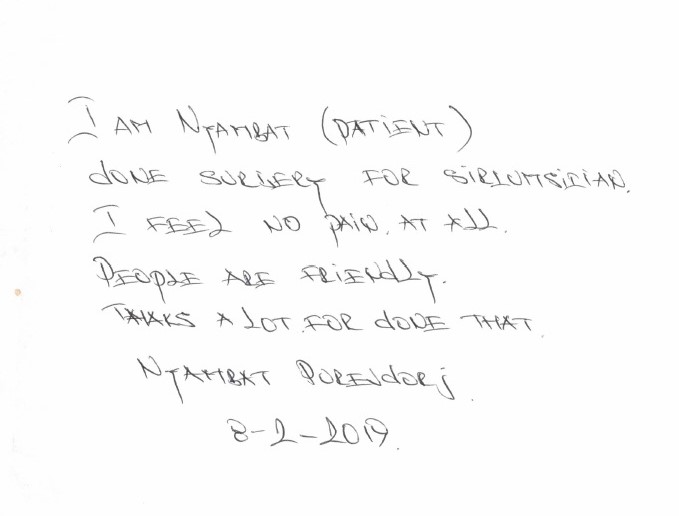 I AM NYAMBAT (PATIENT)
DONE SURGERY FOR SIRIUMSITIAN.
I FEEL NO PAIN. AT ALL.
PEOPLE ARE FRIENDLY.
THAKS A LOT FOR DONE THAT.
NYAMBAT PURENDORJ.
8-2-2019.